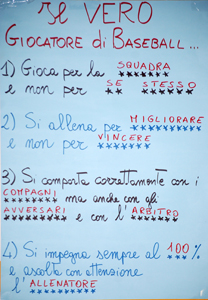 IL VERO
GIOCATORE di BASEBALL...
1) Gioca per la SQUADRA
e non per SE STESSO
2) Si allena per MIGLIORARE
e non per VINCERE
3) Si comporta correttamente con i
COMPAGNI ma anche con gli
AVVERSARI e con l'ARBITRO
4) Si impegna sempre al 100%
e ascolta con attenzione
l'ALLENATORE